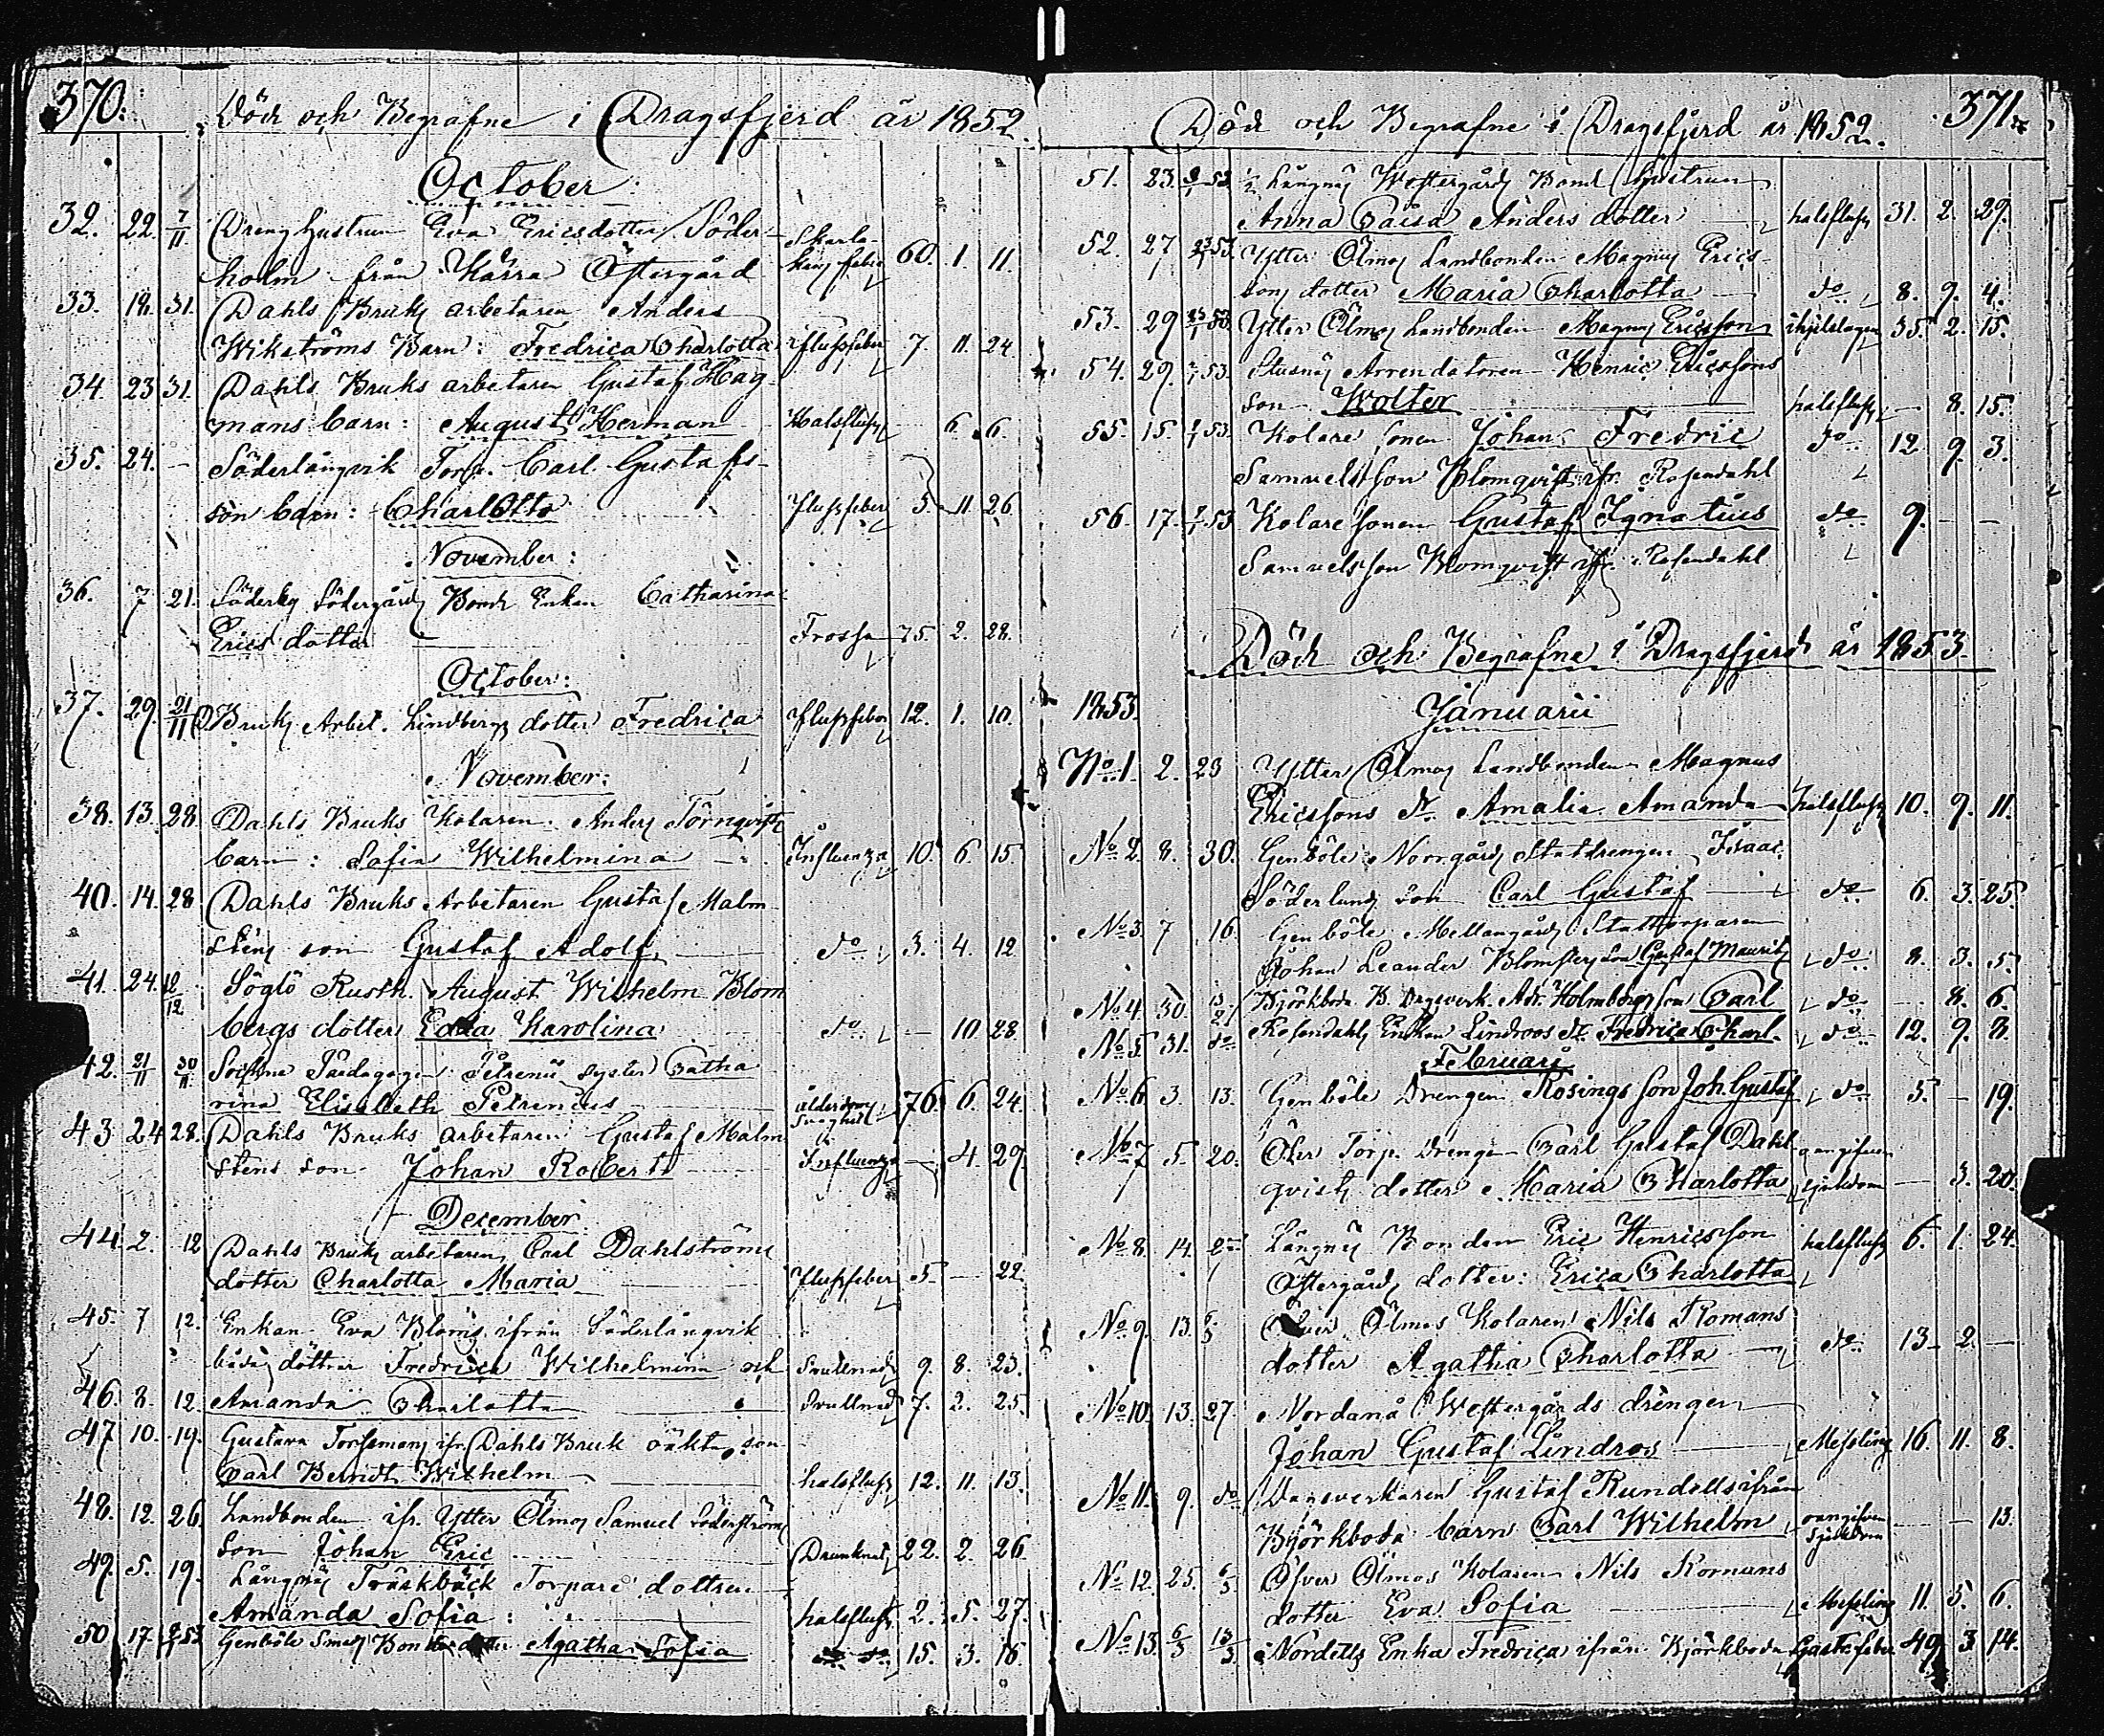 370.
Död och Begrafne i Dragsfjerd år 1852.
October:
32. 22. 7/11 Dreng hustrun Eva Ericsdotter Söder-
holm från Kärra Östergård Skarla- kans feber 60. 1. 11.
33. 18. 31. Dahls Bruks arbetaren Anders
Wikströms Barn: Fredrica Charlotta flussfeber 7. 11. 24
34. 23 31. Dahls Bruks arbetaren Gustaf Hag-
mans barn: August Herman Halsfluss 6. 6.
35. 24. — Söderlångvik Torp. Carl Gustafs-
son barn: Charlotta flussfeber 5. 11. 26
November:
36. 7 21. Söderby Södergårds Bonde Enkan Catharina
Erics dotter Frossa 75. 2. 28.
October:
37. 29. 21/11 D Bruks Arbet. Lindbergs dotter Fredrica flussfeber 12. 1. 10.
November:
38. 13. 28 Dahls Bruks Kolaren Anders Törnqvists
barn: Sofia Wilhelmina Influenza 10. 6. 15
40. 14. 28 Dahls Bruks Arbetaren Gustaf Malm
stens son Gustaf Adolf do 3. 4. 12
41. 24. 12/12 Söglö Rusth. August Wilhelm Blom
bergs dotter Edla Karolina do — 10 28.
42. 21/11 30/11 Pædagogen Petrenii syster Catha
rina Elisabeth Petrenius ålderdoms svaghet 76. 6. 24.
43 24 28. Dahls Bruks arbetaren Gustaf Malm
stens son Johan Robert Influenza — 4. 29.
December
44. 2. 12 Dahls Bruks arbetaren Carl Dahlströms
dotter Charlotta Maria flussfeber 5 — 22
45. 7 12. Enkan Eva Bloms ifrån Söderlångvik
båda döttrar Fredrica Wilhelmina och Svullnad 9. 8. 23.
46. 8. 12. Amanda Charlotta Svullnad 7. 2. 25.
47 10. 19. Gustava Torssmans ifr. Dahls Bruk oäkta son
Carl Berndt Wilhelm halsfluss 12. 11. 13.
48. 12. 26. Landbonden ifr. Ytter Ölmos Samuel Söderströms
son Johan Eric Drunknad 22. 2. 26.
49. 5. 19. Långnäs Träskbäck Torpare dottren
Amanda Sofia: halsfluss 2. 5. 27.
50 17. Genböle Smeds Bonde dotter Agatha Sofia do do 15. 3. 16.
371.
Död och Begrafne i Dragsfjerd år 1852.
51. 23. Långnäs Westergårds Bond hustrun
Anna Caisa Anders dotter halsfluss 31. 2. 29.
52. 27 Ytter Ölmos Landbonden Magnus Erics-
sons dotter Maria Charlotta do 8. 9. 4.
53. 29 Ytter Ölmos Landbonden Magnus Ericsson ihjelslagen 35. 2. 15.
54. 29. Arrendatoren Henric Ericssons
son Wolter halsfluss — 8. 15.
55. 15. Kolare sonen Johan Fredric do 12. 9. 3.
Samuelsson Blomqvist ifr. Rosendahl
56. 17. Kolare sonen Gustaf Ignatius do 9. — —
Samuelsson Blomqvist ifr. Rosendahl
Död och Begrafne i Dragsfjerd år 1853.
1853. Januarii
No. 1. 2. 23 Ytter Ölmos Landbonden Magnus
Ericssons dr. Amalia Amanda halsfluss 10. 9. 11.
No 2. 8. 30. Genböle Norrgårds Statdrengen Isaac
Söderlunds son Carl Gustaf do 6. 3. 25.
No 3. 7 16. Genböle Mellangårds Stattorparen
Johan Leander son Gustaf Mauritz do 8. 3. 5.
No 4. 30. Björkboda B. Dagsverk. Adr. Holmbergs son Carl do — 8. 6.
No 5. 31. do Rosendahls Enkan Lindroos dr. Fredrica Charl. do 12. 9. 8.
Februarii
No 6. 3. 13. Genböle Drengen Rosings son Joh. Gustaf do 5. — 19.
No 7 5. 20. Torp. drengen Carl Gustaf Dahl-
qvists dotter Maria Charlotta oangifven sjukdom — 3. 20.
No 8. 14. Långnäs Bonden Eric Henricsson
Östergårds dotter: Erica Charlotta halsfluss 6. 1. 24.
No 9. 13. Öfver Ölmos Kolaren Nils Romans
dotter Agatha Charlotta do 13. 2. —
No 10. 13. 27. Nordanå Westergårds drengen
Johan Gustaf Lindros Messling 16. 11. 8.
No 11. 9. do Dagsverkaren Gustaf Rundells ifrån
Björkboda barn Carl Wilhelm oangifven sjukdom — — 13.
No 12. 25. 6/3 Öfver Ölmos Kolaren Nils Romans
dotter Eva Sofia Messling 11. 5. 6.
No 13. 6/3 13/3 Nordells Enka Fredrica ifrån Björkboda 49 3 14.